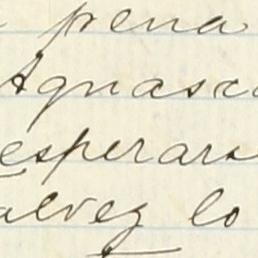 pena
Aguasca
esperars
alvez lo